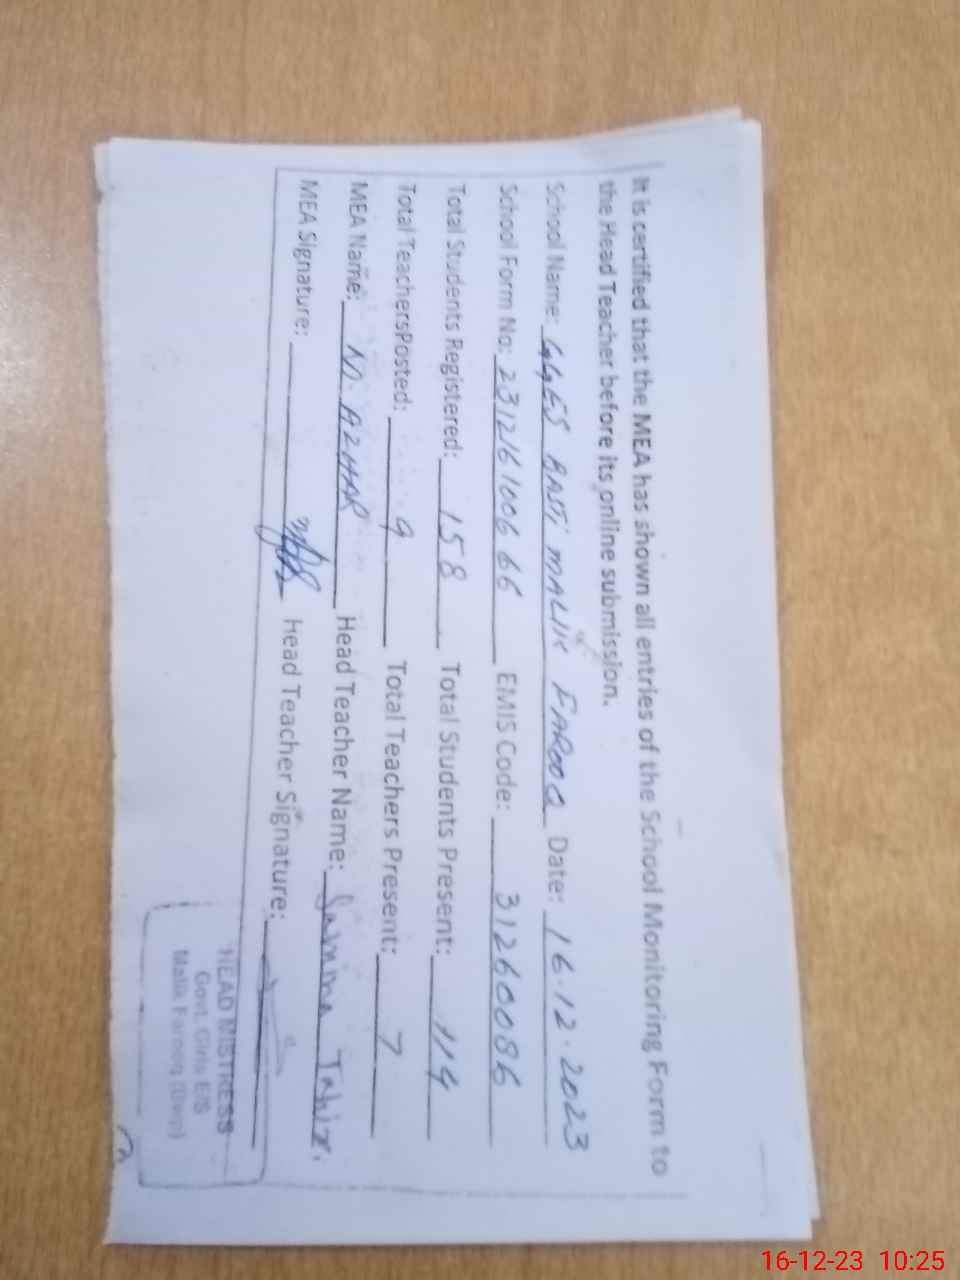 It is certified that the MEA has shown all entries of the School Monitoring Form to
the Head Teacher before its online submission.
School Name: GGES BASTI MALIK FAROOQ Date: 16.12.2023
School Form No: 231216100666 EMIS Code: 31260086
Total Students Registered: 158 Total Students Present: 114
Total TeachersPosted: 9 Total Teachers Present: 7
MEA Name: M. AZHAR Head Teacher Name: Samina Tahir.
MEA Signature: Head Teacher Signature:
HEAD MISTRESS
Govt. Girls E/S
Malik Farooq (Bwp)
16-12-23 10:25